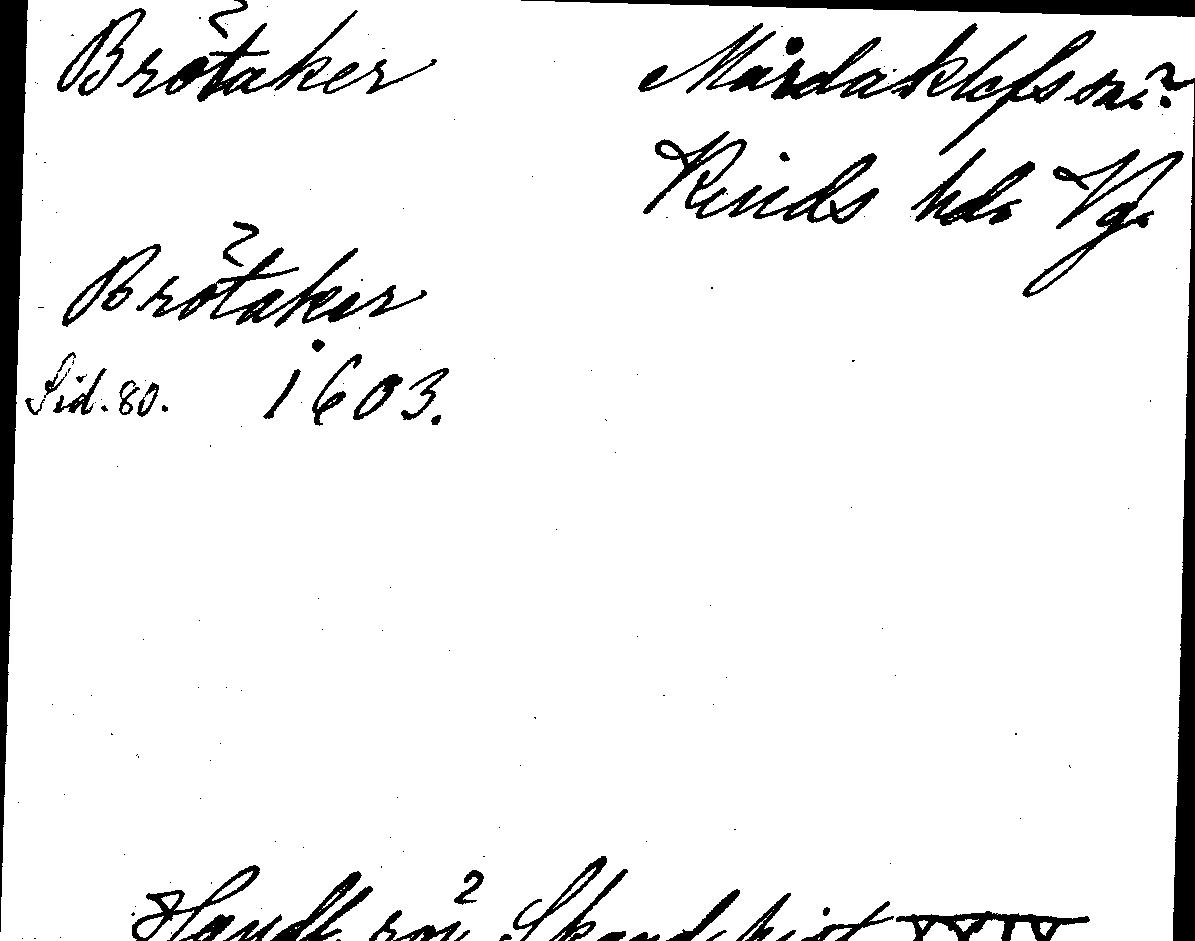 Brötaker
Mårdaklefs sn.?
Kinds hd. Vg.
Brötaker
Sid. 80. 1603.
Handl. rör Skand. hist XXIV